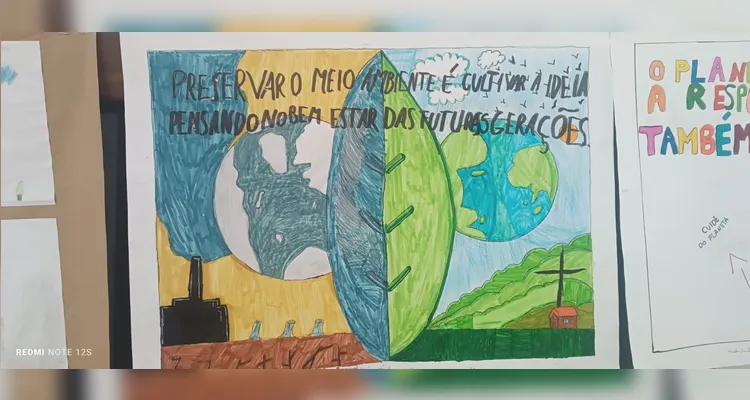 PRESERVAR O MEIO AMBIENTE É CULTIVAR A IDÉIA
PENSANDO NO BEM ESTAR DAS FUTURAS GERAÇÕES.
O PLAN
A RESP
TAMBÉM
CUIDE
DO PLANETA
REDMI NOTE 12S